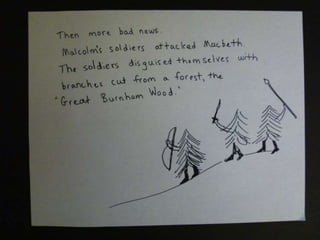 Then more bad news.
Malcolm's soldiers attacked Macbeth.
The soldiers disguised themselves with
branches cut from a forest, the
"Great Burnham Wood."